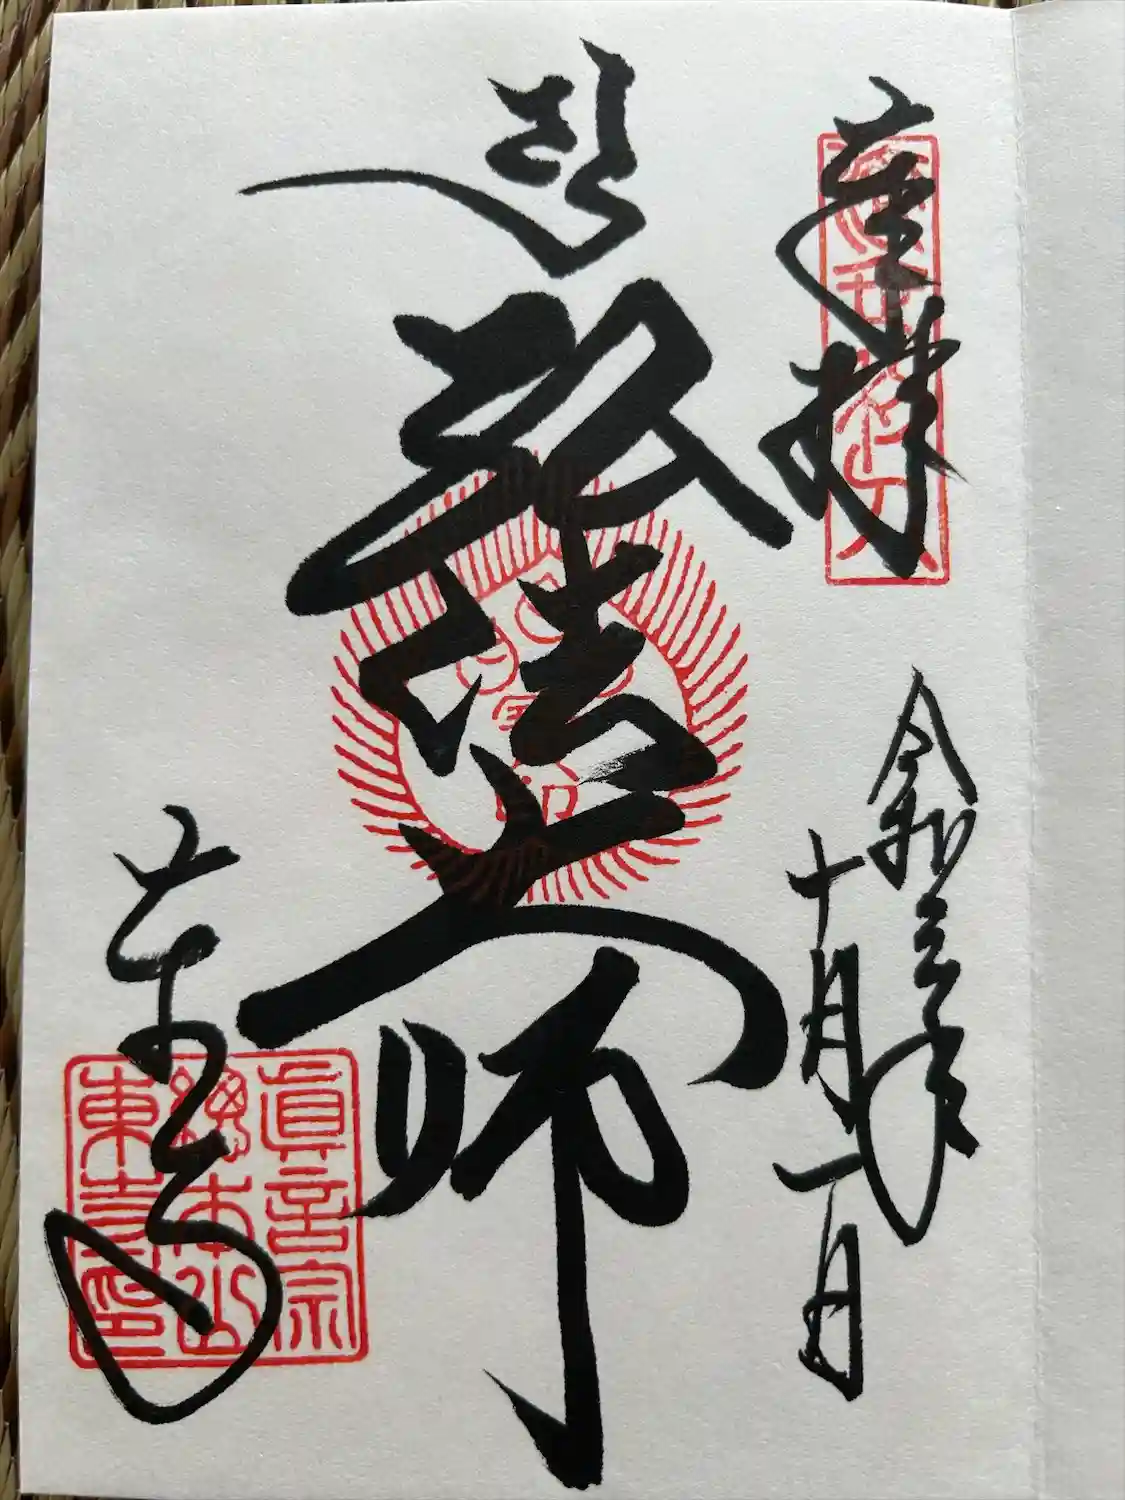 奉拝
令和 年
十月一日
弘法大師
東寺
眞言宗
總本山
東寺印